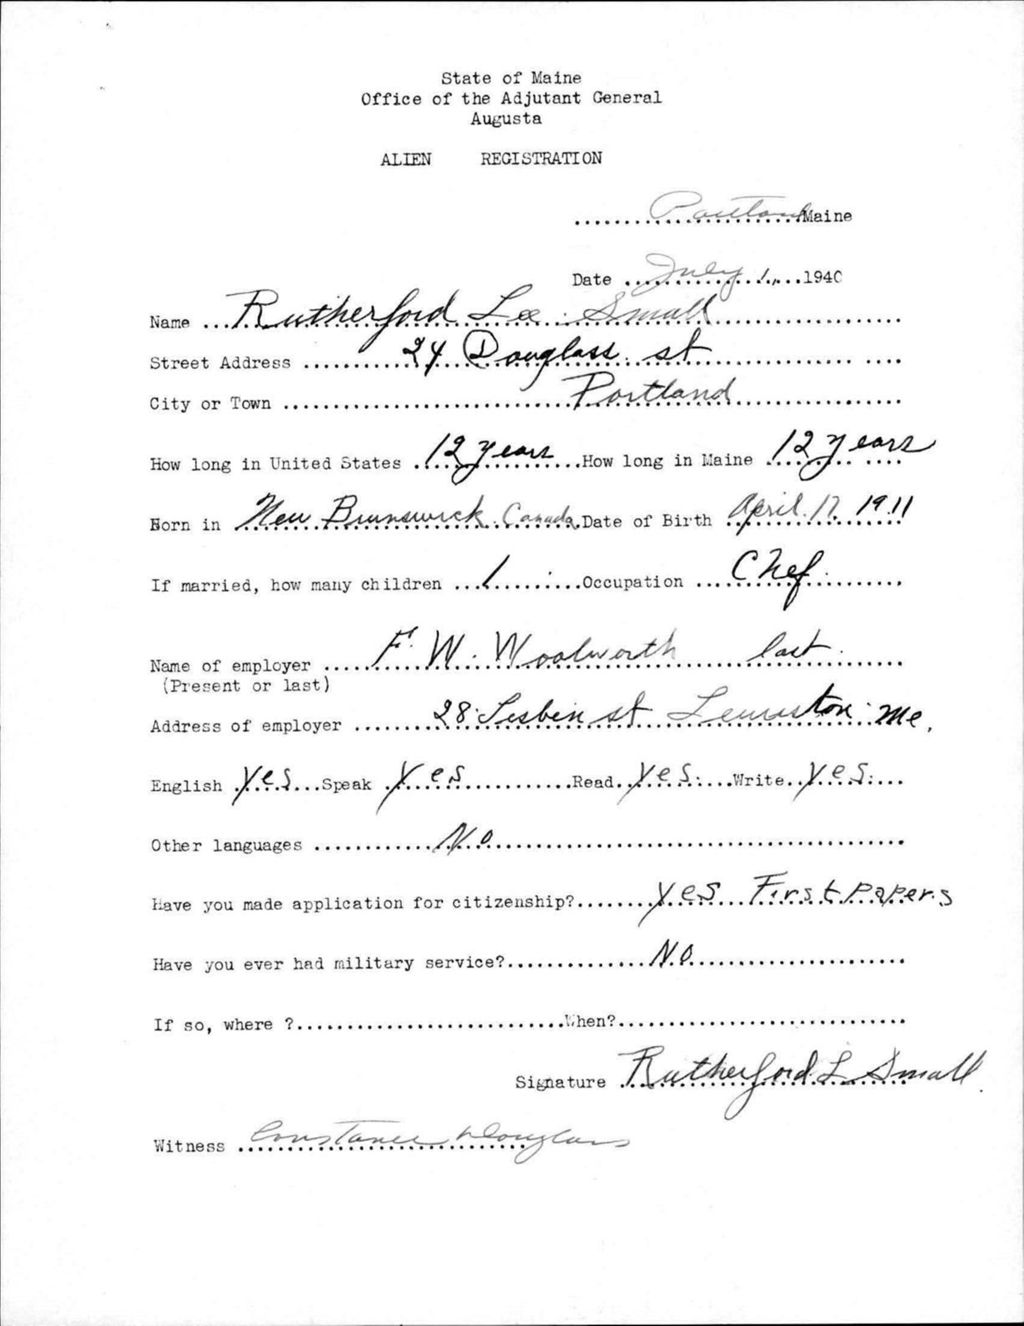 State of Maine
Office of the Adjutant General
Augusta
ALIEN REGISTRATION
Portland Maine
Date July 1, 1940
Name Rutherford Lee Small
Street Address 24 Douglass st
City or Town Portland
How long in United States 12 years How long in Maine 12 years
Born in New Brunswick Canada Date of Birth April 17 1911
If married, how many children 1 Occupation Chef
Name of employer F. W. Woolworth last
(Present or last)
Address of employer 28 Lisben st Lewiston Me,
English Yes Speak Yes Read Yes Write Yes
Other languages No
Have you made application for citizenship? Yes First Papers
Have you ever had military service? No
If so, where ? When?
Signature Rutherford L Small
Witness Constance Douglass